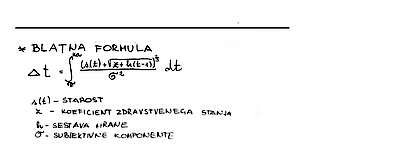 * BLATNA FORMULA
Δt = ∫ (s(t) + √z + h(t-1))^3 / σ^2 dt
s(t) - STAROST
z - KOEFICIENT ZDRAVSTVENEGA STANJA
h - SESTAVA HRANE
σ - SUBJEKTIVNE KOMPONENTE